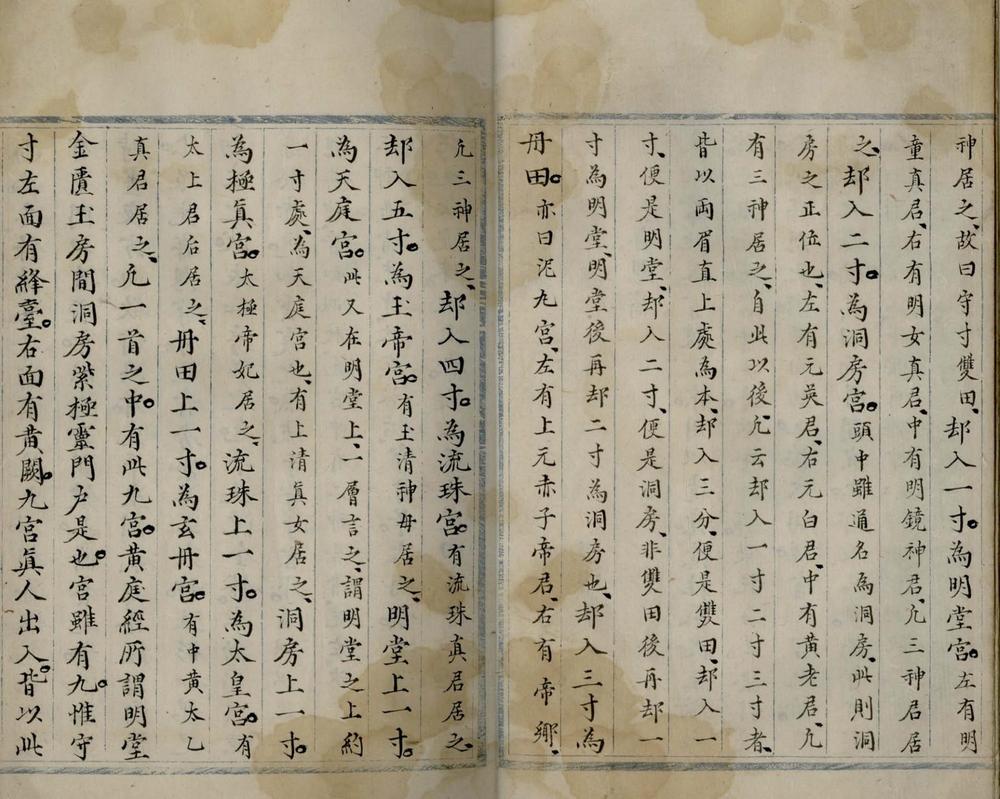 神居之、故曰守寸雙田、却入一寸。為明堂宮。左有明
童真君、右有明女真君、中有明鏡神君、凢三神君居
之、却入二寸。為洞房宮。頭中雖通名為洞房、此則洞
房之正位也、左有元英君、右元白君、中有黃老君、凢
有三神居之、自此以後、凢云却入一寸二寸三寸者、
皆以兩眉直上處為本、却入三分、便是雙田、却入一
寸、便是明堂、却入二寸、便是洞房、非雙田後再却一
寸為明堂、明堂後再却二寸為洞房也、却入三寸為
丹田。亦曰泥九宮、左有上元赤子帝君、右有帝鄉、
凢三神居之、却入四寸。為流珠宮。有流珠真君居之
却入五寸。為玉帝宮。有玉清神母居之、明堂上一寸。
為天庭宮。此又在明堂上、一層言之、謂明堂之上約
一寸處、為天庭宮也、有上清真女居之、洞房上一寸。
為極真宮。太極帝妃居之、流珠上一寸。為太皇宮。有
太上君后居之、丹田上一寸。為玄丹宮。有中黃太乙
真君居之、凢一首之中。有此九宮。黃庭經所謂明堂
金匱玉房間洞房紫極靈門户是也。宮雖有九。惟守
寸左面有絳臺。右面有黃闕。九宮真人出入。皆以此